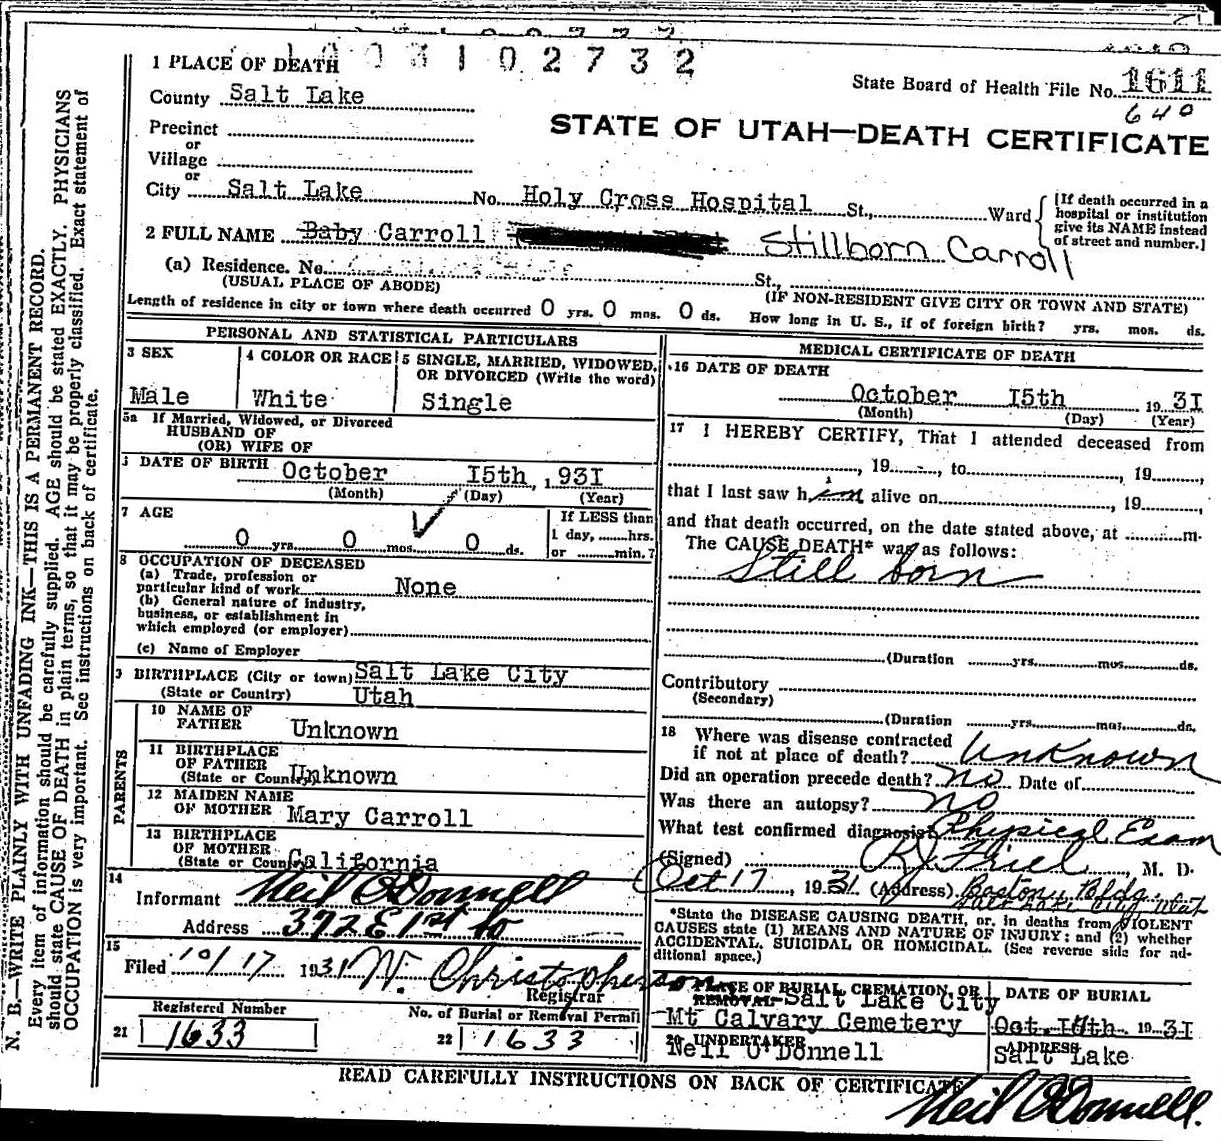 1 PLACE OF DEATH 003102732
State Board of Health File No. 1611
640
County Salt Lake
STATE OF UTAH—DEATH CERTIFICATE
Precinct
or
Village
or
City Salt Lake No. Holy Cross Hospital St., Ward
[If death occurred in a hospital or institution give its NAME instead of street and number.]
2 FULL NAME Baby Carroll Stillborn Carroll
(a) Residence. No. St.,
(USUAL PLACE OF ABODE) (IF NON-RESIDENT GIVE CITY OR TOWN AND STATE)
Length of residence in city or town where death occurred 0 yrs. 0 mos. 0 ds. How long in U. S., if of foreign birth? yrs. mos. ds.
PERSONAL AND STATISTICAL PARTICULARS
3 SEX
Male
4 COLOR OR RACE
White
5 SINGLE, MARRIED, WIDOWED, OR DIVORCED (Write the word)
Single
5a If Married, Widowed, or Divorced
HUSBAND OF
(OR) WIFE OF
DATE OF BIRTH October 15th, 1931
(Month) (Day) (Year)
7 AGE
0 yrs. 0 mos. 0 ds.
If LESS than
1 day, hrs.
or min.?
8 OCCUPATION OF DECEASED
(a) Trade, profession or
particular kind of work None
(b) General nature of industry,
business, or establishment in
which employed (or employer)
(c) Name of Employer
9 BIRTHPLACE (City or town) Salt Lake City
(State or Country) Utah
PARENTS
10 NAME OF
FATHER Unknown
11 BIRTHPLACE
OF FATHER
(State or Country) Unknown
12 MAIDEN NAME
OF MOTHER Mary Carroll
13 BIRTHPLACE
OF MOTHER
(State or Country) California
14
Informant Neil O'Donnell
Address 372 E 1st So
15
Filed 10/17 1931 W. Christopherson
Registrar
Registered Number
21 1633
No. of Burial or Removal Permit
22 1633
MEDICAL CERTIFICATE OF DEATH
16 DATE OF DEATH
October 15th 1931
(Month) (Day) (Year)
17 I HEREBY CERTIFY, That I attended deceased from
, 19 , to , 19 ,
that I last saw him alive on , 19 ,
and that death occurred, on the date stated above, at m.
The CAUSE DEATH* was as follows:
Still born
(Duration yrs. mos. ds.
Contributory
(Secondary)
(Duration yrs. mos. ds.
18 Where was disease contracted
if not at place of death? Unknown
Did an operation precede death? no Date of
Was there an autopsy? no
What test confirmed diagnosis? Physical Exam
(Signed) M. D.
Oct 17, 1931 (Address) Boston Bldg.
Salt Lake City Utah
*State the DISEASE CAUSING DEATH, or, in deaths from VIOLENT
CAUSES state (1) MEANS AND NATURE OF INJURY; and (2) whether
ACCIDENTAL, SUICIDAL OR HOMICIDAL. (See reverse side for ad-
ditional space.)
PLACE OF BURIAL, CREMATION, OR
REMOVAL Salt Lake City
Mt Calvary Cemetery
DATE OF BURIAL
Oct. 17th. 1931
20 UNDERTAKER
Neil O'Donnell
ADDRESS
Salt Lake
READ CAREFULLY INSTRUCTIONS ON BACK OF CERTIFICATE
Neil O'Donnell.
N. B.—WRITE PLAINLY WITH UNFADING INK—THIS IS A PERMANENT RECORD.
Every item of information should be carefully supplied. AGE should be stated EXACTLY. PHYSICIANS
should state CAUSE OF DEATH in plain terms, so that it may be properly classified. Exact statement of
OCCUPATION is very important. See instructions on back of certificate.